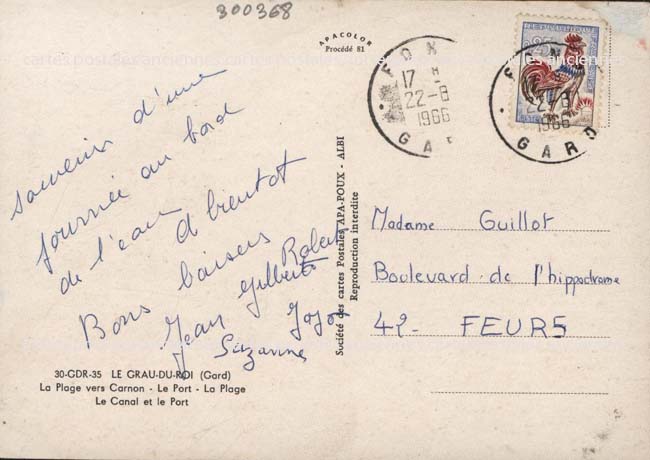 300368
APACOLOR
Procédé 81
cartes postales anciennes
souvenir d'une
journée au bord
de l'eau
à bientot
Bons baisers
Robert
Jean Gilberte
Jojo
Suzanne
30-GDR-35 LE GRAU-DU-ROI (Gard)
La Plage vers Carnon - Le Port - La Plage
Le Canal et le Port
Société des cartes Postales APA-POUX - ALBI
Reproduction interdite
17 H
22-8
1966
GARD
22-8
1966
GARD
Madame Guillot
Boulevard de l'hippodrome
42- FEURS